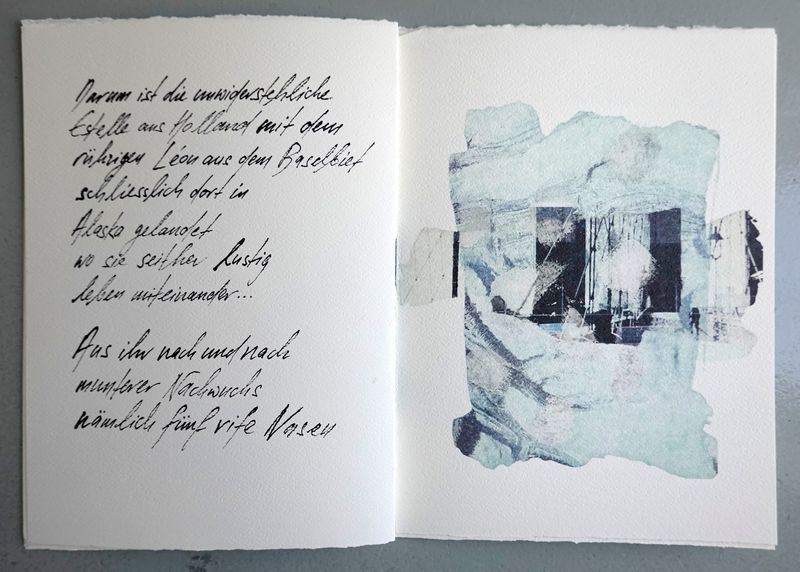 Darum ist die unwiderstehliche
Estelle aus Holland mit dem
rührigen Léon aus dem Baselbiet
schliesslich dort in
Alaska gelandet
wo sie seither lustig
leben miteinander...
Aus ihr nach und nach
munterer Nachwuchs
nämlich fünf rife Nasen